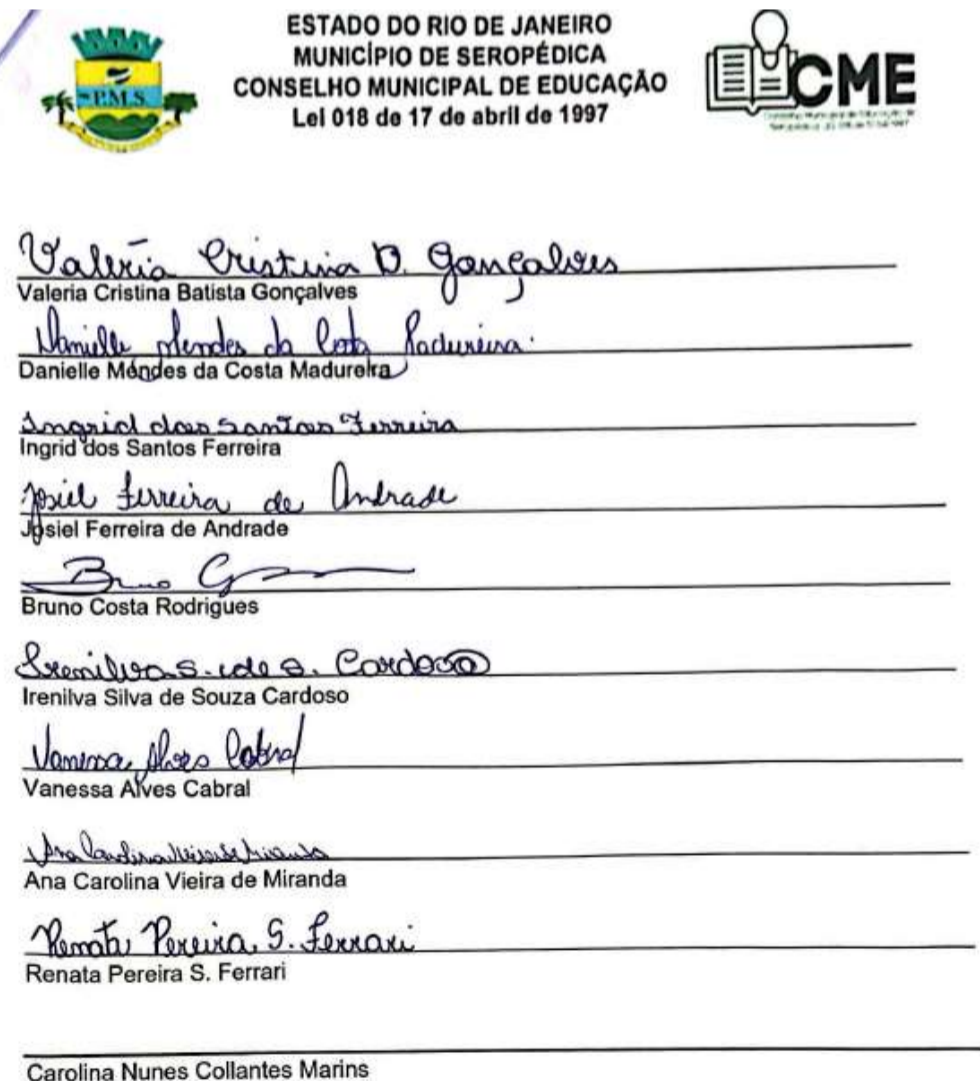 ESTADO DO RIO DE JANEIRO
MUNICÍPIO DE SEROPÉDICA
CONSELHO MUNICIPAL DE EDUCAÇÃO
Lei 018 de 17 de abril de 1997
P.M.S.
CME
Valéria Cristina B. Gonçalves
Valeria Cristina Batista Gonçalves
Danielle Mendes da Costa Madureira
Danielle Mendes da Costa Madureira
Ingrid dos Santos Ferreira
Ingrid dos Santos Ferreira
Josiel Ferreira de Andrade
Josiel Ferreira de Andrade
Bruno
Bruno Costa Rodrigues
Irenilva S. de S. Cardoso
Irenilva Silva de Souza Cardoso
Vanessa Alves Cabral
Vanessa Alves Cabral
Ana Carolina Vieira de Miranda
Ana Carolina Vieira de Miranda
Renata Pereira S. Ferrari
Renata Pereira S. Ferrari
Carolina Nunes Collantes Marins